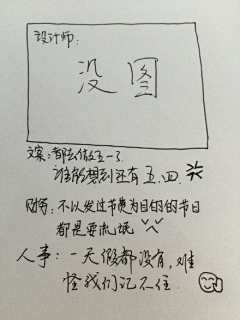 设计师:
没图
文案:都去做五一了
谁能想到还有五.四.
财务:不以发过节费为目的的节日
都是耍流氓
人事:一天假都没有,难
怪我们记不住